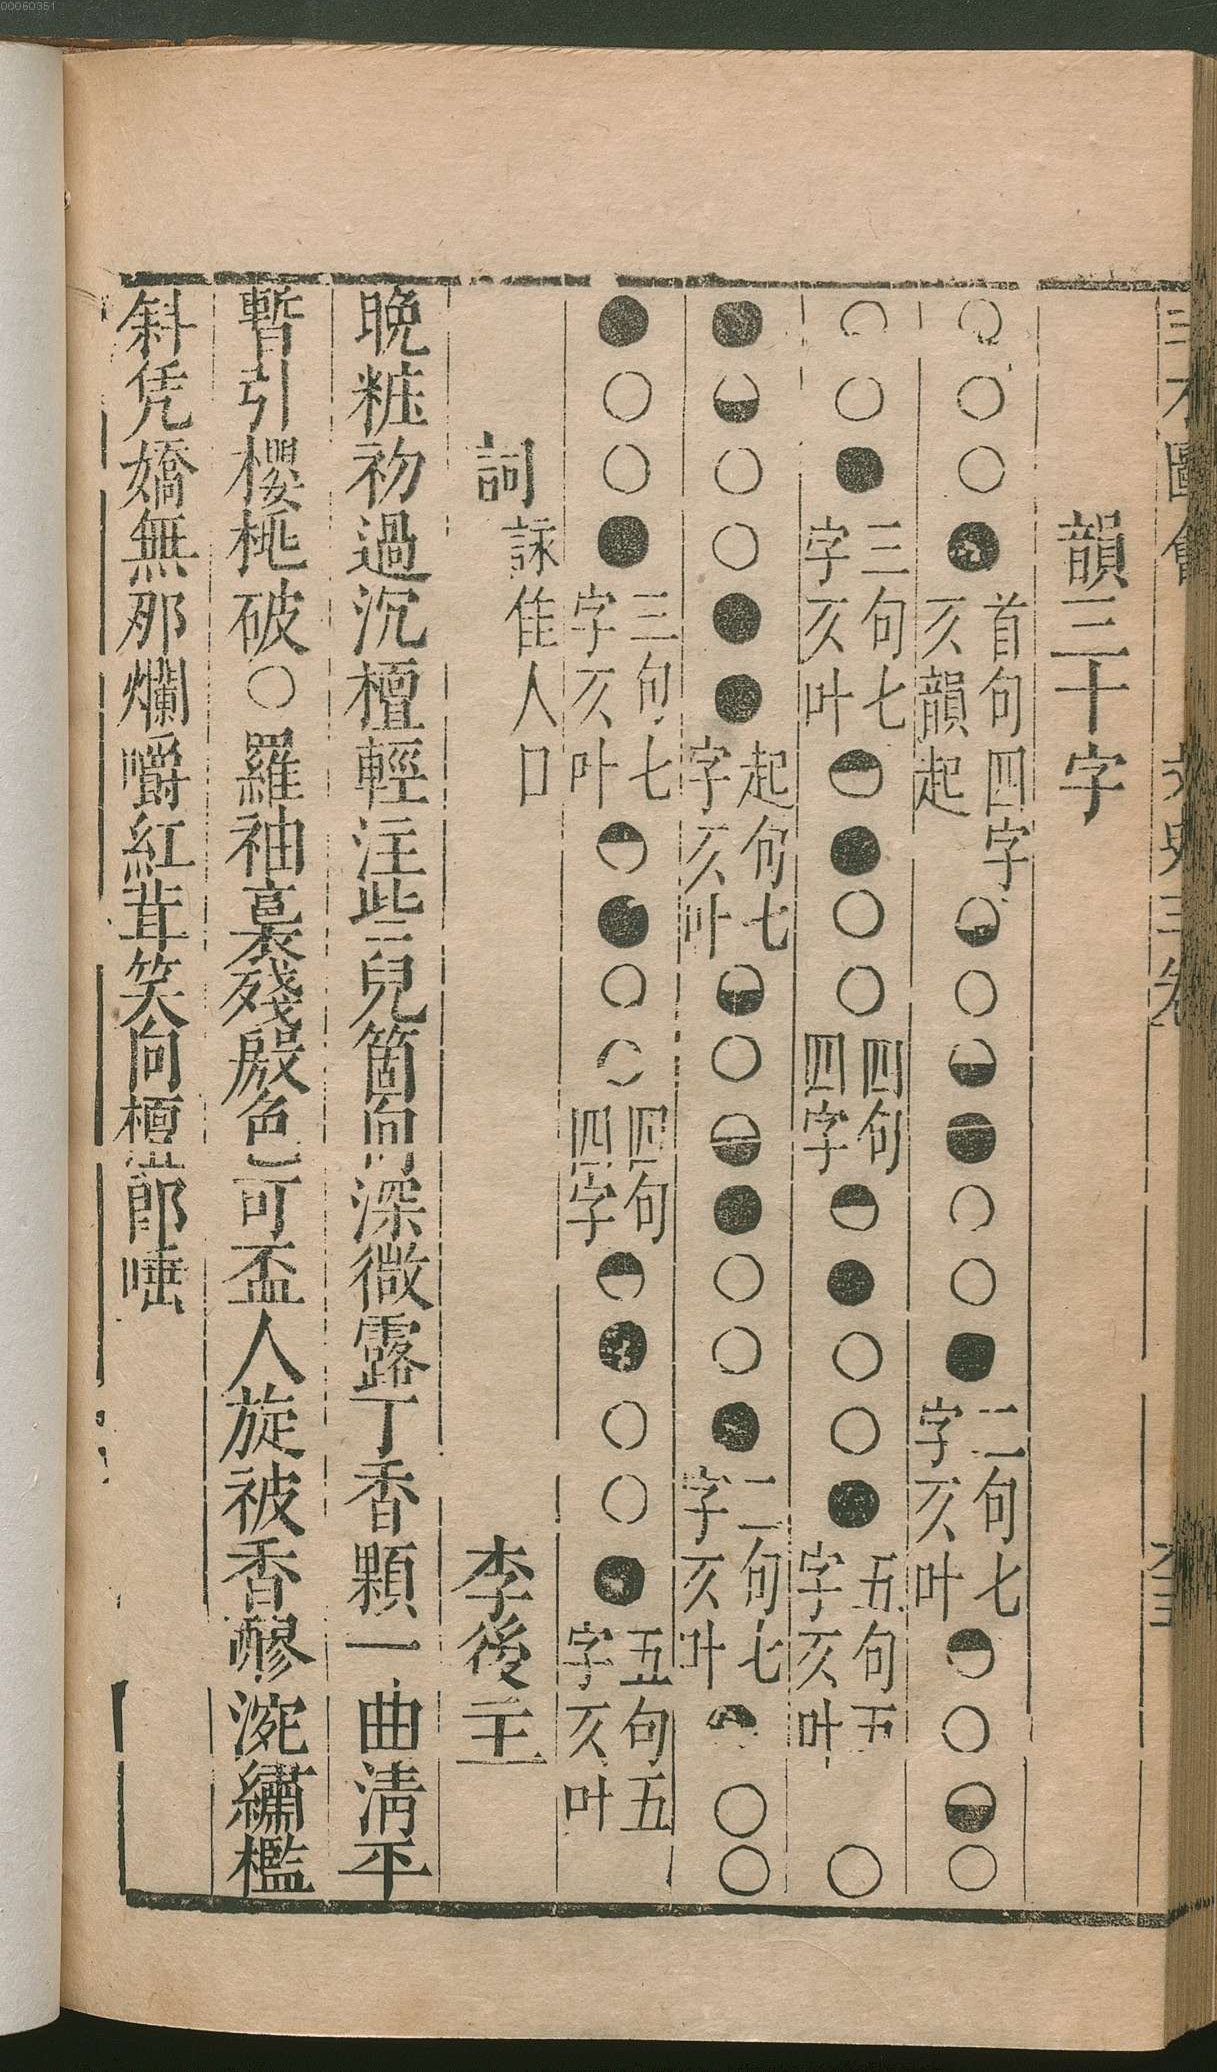 三才圖會 文史三卷
韻三十字
首句四字仄韻起 二句七字仄叶
三句七字仄叶 四句四字 五句五字仄叶
起句七字仄叶 二句七字仄叶
三句七字仄叶 四句四字 五句五字仄叶
詞 詠佳人口 李後主
晚粧初過沉檀輕注些兒箇向深微露丁香顆一曲清平
暫引櫻桃破○羅袖裛殘殷色可盃人旋被香醪涴繡檻
斜凭嬌無那爛嚼紅茸笑向檀郎唾